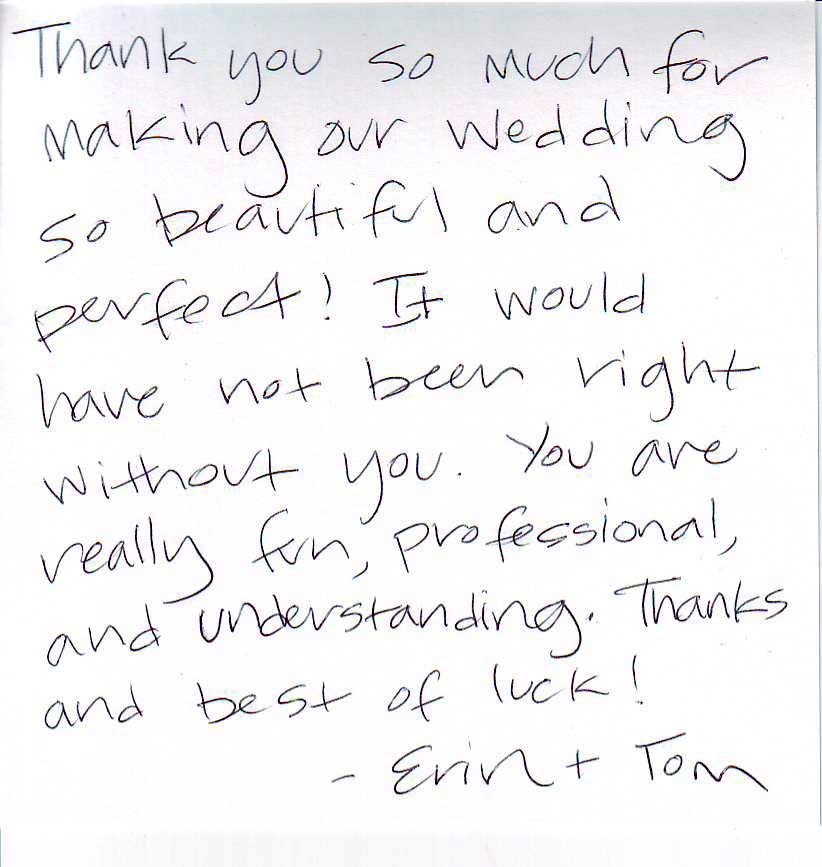 Thank you so much for
making our wedding
so beautiful and
perfect! It would
have not been right
without you. You are
really fun, professional,
and understanding. Thanks
and best of luck!
- Erin + Tom